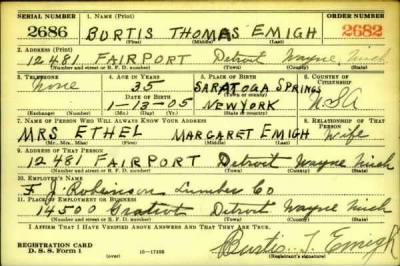 SERIAL NUMBER 1. NAME (Print) ORDER NUMBER
2686 BURTIS THOMAS EMIGH 2682
(First) (Middle) (Last)
2. ADDRESS (Print)
12481 FAIRPORT Detroit Wayne Mich
(Number and street or R. F. D. number) (Town) (County) (State)
3. TELEPHONE 4. AGE IN YEARS 5. PLACE OF BIRTH 6. COUNTRY OF CITIZENSHIP
None 35 SARATOGA SPRINGS
DATE OF BIRTH (Town or county)
1-13-05 NEW YORK USA
(Mo.) (Day) (Yr.) (State or country)
7. NAME OF PERSON WHO WILL ALWAYS KNOW YOUR ADDRESS 8. RELATIONSHIP OF THAT PERSON
MRS ETHEL MARGARET EMIGH Wife
(Mr., Mrs., Miss) (First) (Middle) (Last)
9. ADDRESS OF THAT PERSON
12481 FAIRPORT Detroit Wayne Mich
(Number and street or R. F. D. number) (Town) (County) (State)
10. EMPLOYER'S NAME
F J Robinson Lumber Co
11. PLACE OF EMPLOYMENT OR BUSINESS
14500 Gratiot Detroit Wayne Mich
(Number and street or R. F. D. number) (Town) (County) (State)
I AFFIRM THAT I HAVE VERIFIED ABOVE ANSWERS AND THAT THEY ARE TRUE.
REGISTRATION CARD
D. S. S. Form 1 (over) Burtis T. Emigh
(Registrant's signature)